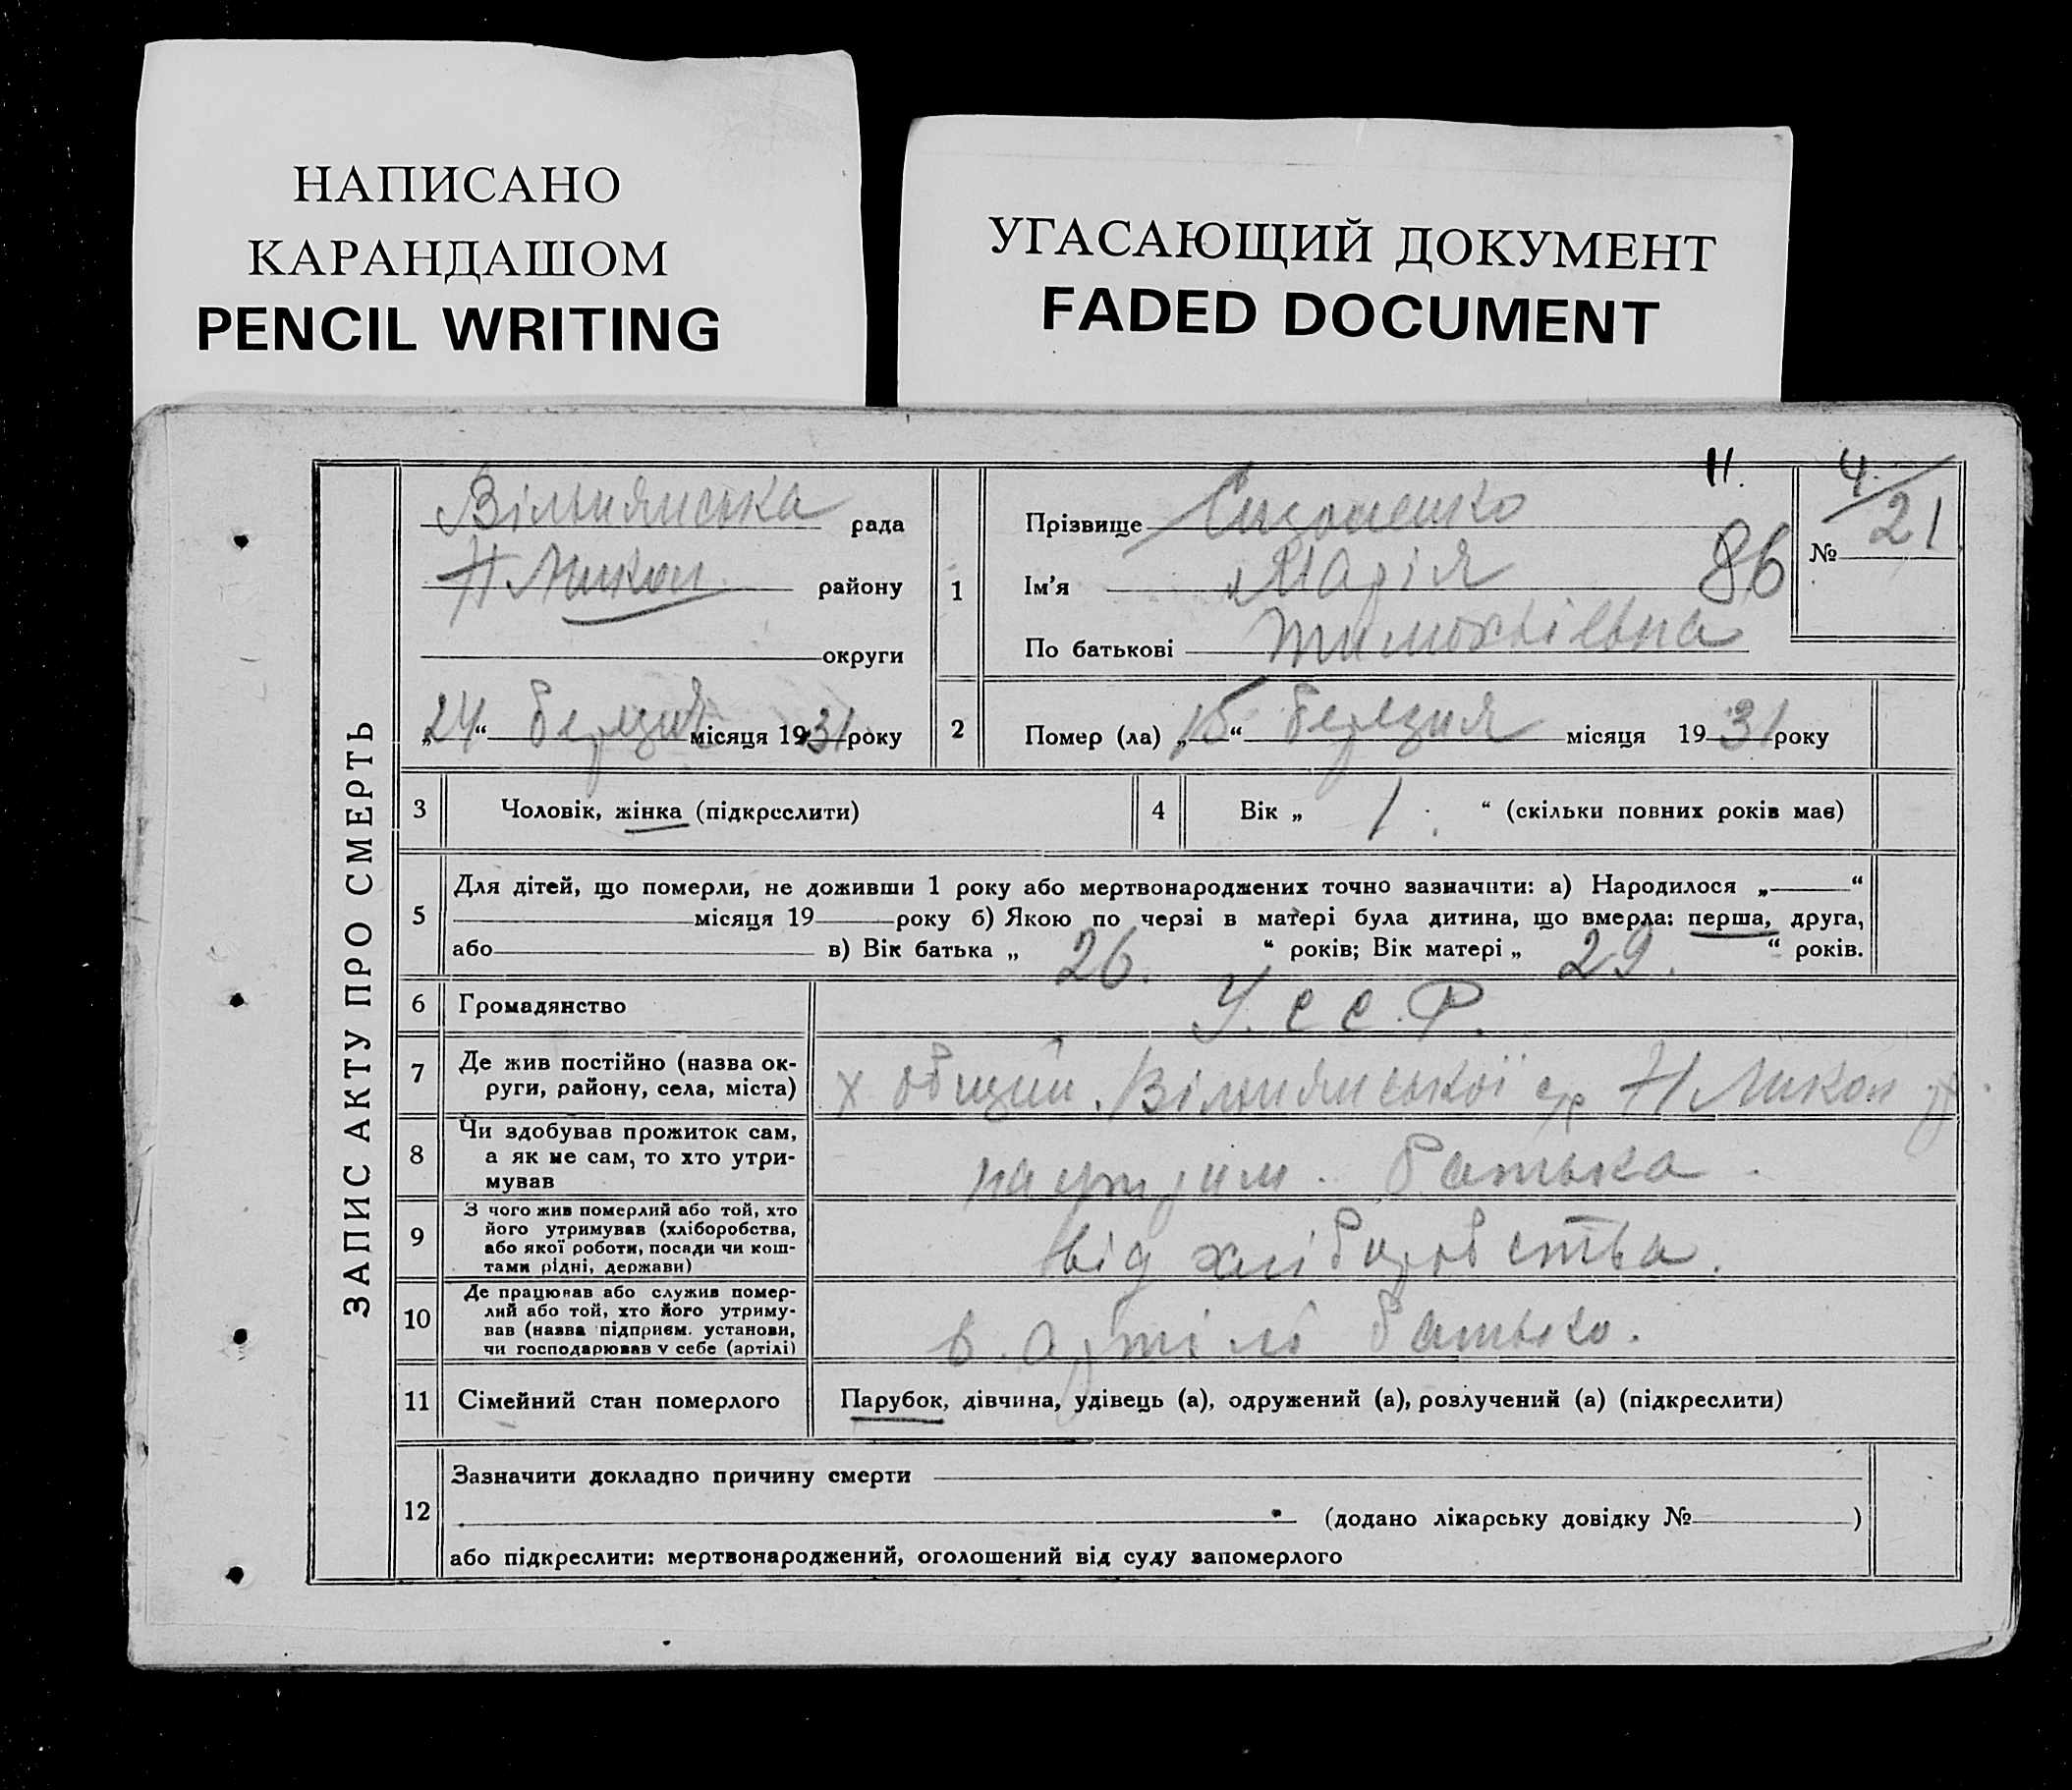 НАПИСАНО
КАРАНДАШОМ
PENCIL WRITING
УГАСАЮЩИЙ ДОКУМЕНТ
FADED DOCUMENT
ЗАПИС АКТУ ПРО СМЕРТЬ
Вільнянська рада
Н Микол району
округи
„24“ березня місяця 1931 року
11.
4/21
№
86
1
Прізвище
Ім'я Марія
По батькові Тимофіївна
2
Помер (ла) „15“ березня місяця 1931 року
3 Чоловік, жінка (підкреслити)
4 Вік „ 1. “ (скільки повних років має)
5
Для дітей, що померли, не доживши 1 року або мертвонароджених точно зазначити: а) Народилося „ “
місяця 19 року б) Якою по черзі в матері була дитина, що вмерла: перша, друга,
або в) Вік батька „ 26. “ років; Вік матері „ 29. “ років.
6 Громадянство У.С.С.Р.
7 Де жив постійно (назва ок-
руги, району, села, міста)
х Общий. Вільнянської с/р Н Микол р.
8 Чи здобував прожиток сам,
а як не сам, то хто утри-
мував
на утрим. батька.
9 З чого жив померлий або той, хто
його утримував (хліборобства,
або якої роботи, посади чи кош-
тами рідні, держави)
від хліборобства.
10 Де працював або служив помер-
лий або той, хто його утриму-
вав (назва підприєм. установи,
чи господарював у себе (артілі)
в артілі батько.
11 Сімейний стан померлого Парубок, дівчина, удівець (а), одружений (а), розлучений (а) (підкреслити)
12
Зазначити докладно причину смерти
(додано лікарську довідку № )
або підкреслити: мертвонароджений, оголошений від суду запомерлого